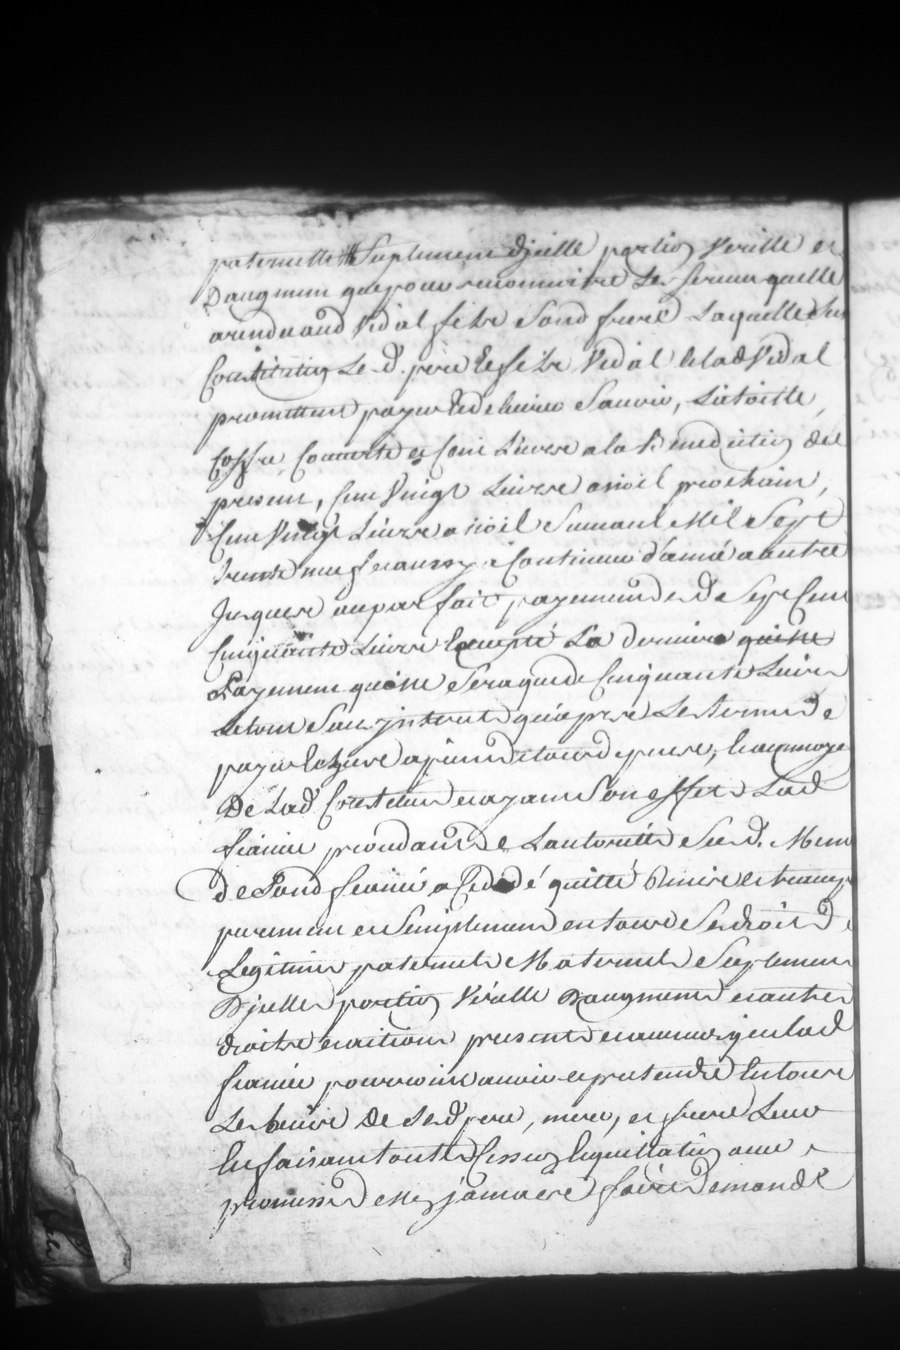 paternelle Suplement d'jcelle portion Virille et
D'augment que pour renonciation Les services quelle
a rendu aud Vidal fils Sond frere Laquelle de
Constitution Led. pere et fils Vidal et lad Vidal
promettent payer et delivrer Sauoir, Lad toille,
Coffre, Couuerte et Cent Liures a la Benediction du
present, Cent Vingt Liures a noel prochain,
Cent Vingt Liures a noel Suiuant Mil Sept
trente neuf et aussy a Continuer d'anné a autre
Jusques au parfait payement desd Sept Cent
Cinquante Liures Excepté La derniere
Payement qui ne Sera que de Cinquante Liures
Le tout Sans jnterets qu'apres Les termes de
payer Echeus a peine de tous depens, Et au moyen
De Lad Constitution et ayant Son effet Lad
fiancée procedant de Lautorité Sud. Mem
de Sond fiancé a Cedé quitté Remis et transp
purement et Simplement en tous Ses droits de
Legitime paternels Maternels Suplement
D'jcelles portion Virille D'augment et autres
droits et actions presents et auenir qu'en lad
fiancée pourroint auoir et pretendre En tous
Les biens De Sesd pere, mere, et frere Leur
En faisant toute Cession Et quittation auec
promesse de ne jamais faire Demande